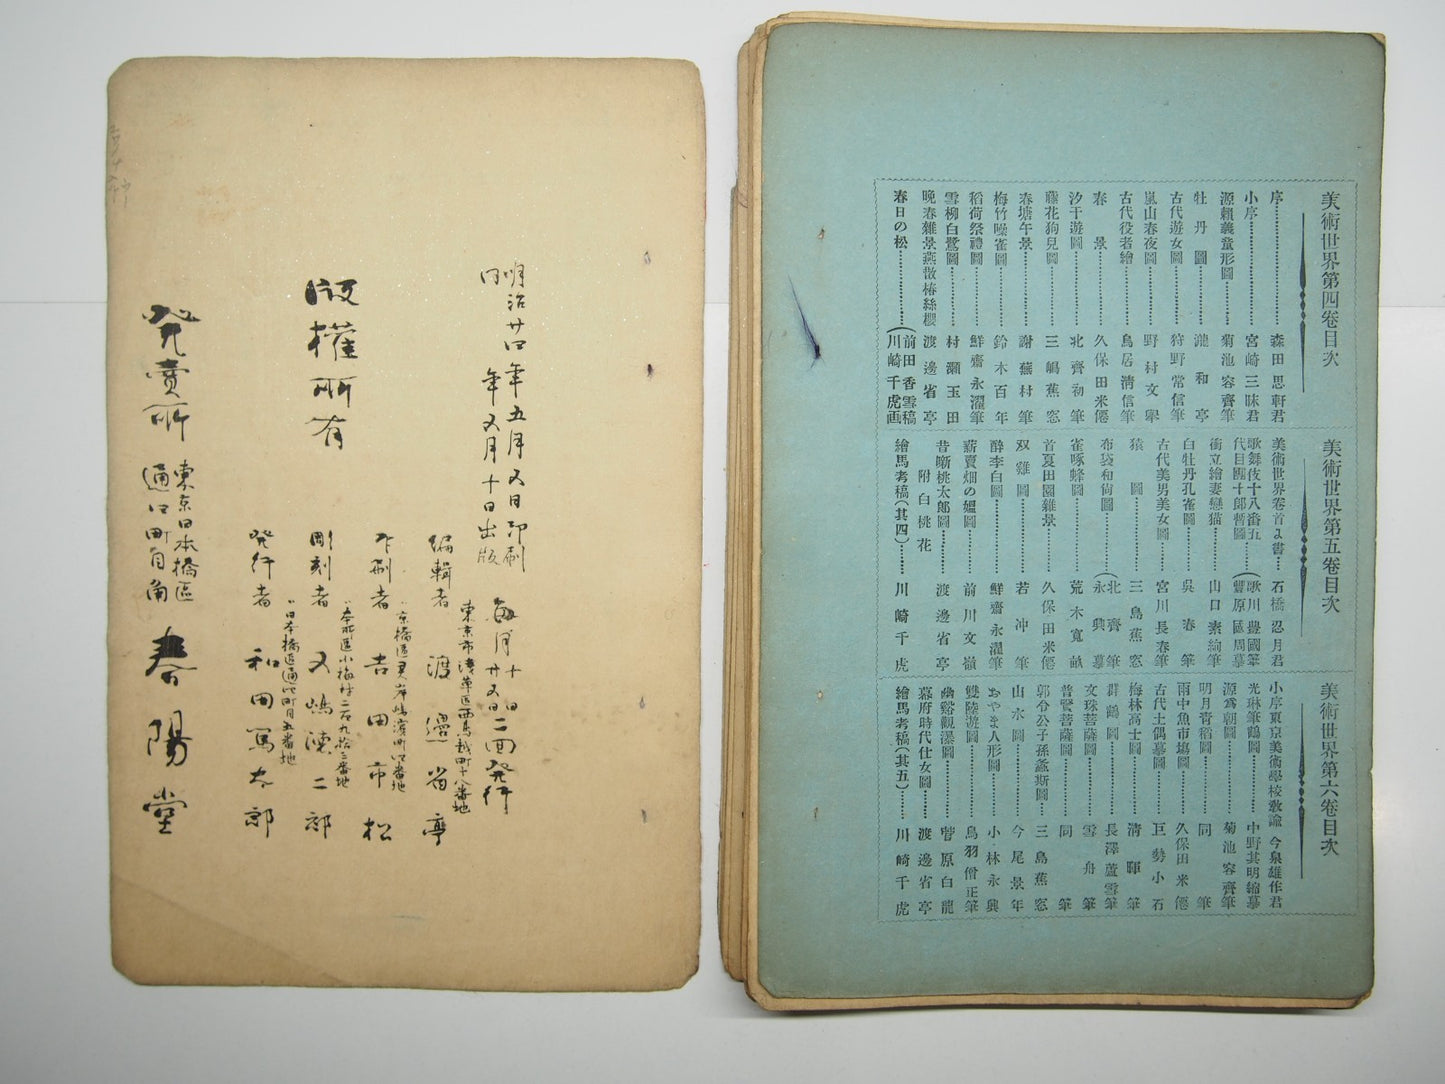 明治廿四年五月又日印刷
同年又月十日出版
毎月十日廿又日二回発行
東京市浅草区西鳥越町十八番地
編輯者 渡邊省亭
京橋區霊岸嶋濱町四番地
印刷者 吉田市松
本所區小梅村二百九拾三番地
彫刻者 又嶋徳二郎
日本橋區通四町目五番地
発行者 和田篤太郎
版權所有
東京日本橋區
通四町目角
発賣所 春陽堂
美術世界第四卷目次
序 森田思軒君
小序 宮崎三昧君
源賴義童形圖 菊池容齊筆
牡丹圖 瀧和亭
古代遊女圖 狩野常信筆
嵐山春夜圖 野村文擧
古代役者繪 鳥居淸信筆
春景 久保田米僊
汐干遊圖 北齊初筆
藤花狗兒圖 三嶋蕉窓
春塘午景 謝蕪村筆
梅竹噪雀圖 鈴木百年
稻荷祭禮圖 鮮齋永濯筆
雪柳白鷺圖 村瀬玉田
晚春雜景燕散椿絲櫻 渡邊省亭
春日の松 (前田香雪稿
川崎千虎画
美術世界第五卷目次
美術世界卷首ニ書 石橋忍月君
歌舞伎十八番五
代目團十郎暫圖 (歌川豊國筆
豐原國周摹
衝立繪妻戀猫 山口素絢筆
白牡丹孔雀圖 吳春筆
古代美男美女圖 宮川長春筆
猿圖 三島蕉窓
布袋和尙圖 (北齊筆
永興摹
雀啄蜂圖 荒木寬畝
首夏田園雜景 久保田米僊
双雞圖 若冲筆
醉李白圖 鮮齋永濯筆
薪賣畑の媼圖 前川文嶺
昔噺桃太郎圖 渡邊省亭
附白桃花
繪馬考稿(其四) 川崎千虎
美術世界第六卷目次
小序東京美術學校敎諭 今泉雄作君
光琳筆鶴圖 中野其明縮摹
源爲朝圖 菊池容齊筆
明月靑稻圖 同筆
雨中魚市塲圖 久保田米僊
古代土偶摹圖 巨勢小石
梅林高士圖 淸暉筆
群鶴圖 長澤蘆雪筆
文珠菩薩圖 雪舟筆
普賢菩薩圖 同筆
郭令公子孫螽斯圖 三島蕉窓
山水圖 今尾景年
おやま人形圖 小林永興
雙陸遊圖 鳥羽僧正筆
幽谿觀瀑圖 菅原白龍
幕府時代仕女圖 渡邊省亭
繪馬考稿(其五) 川崎千虎